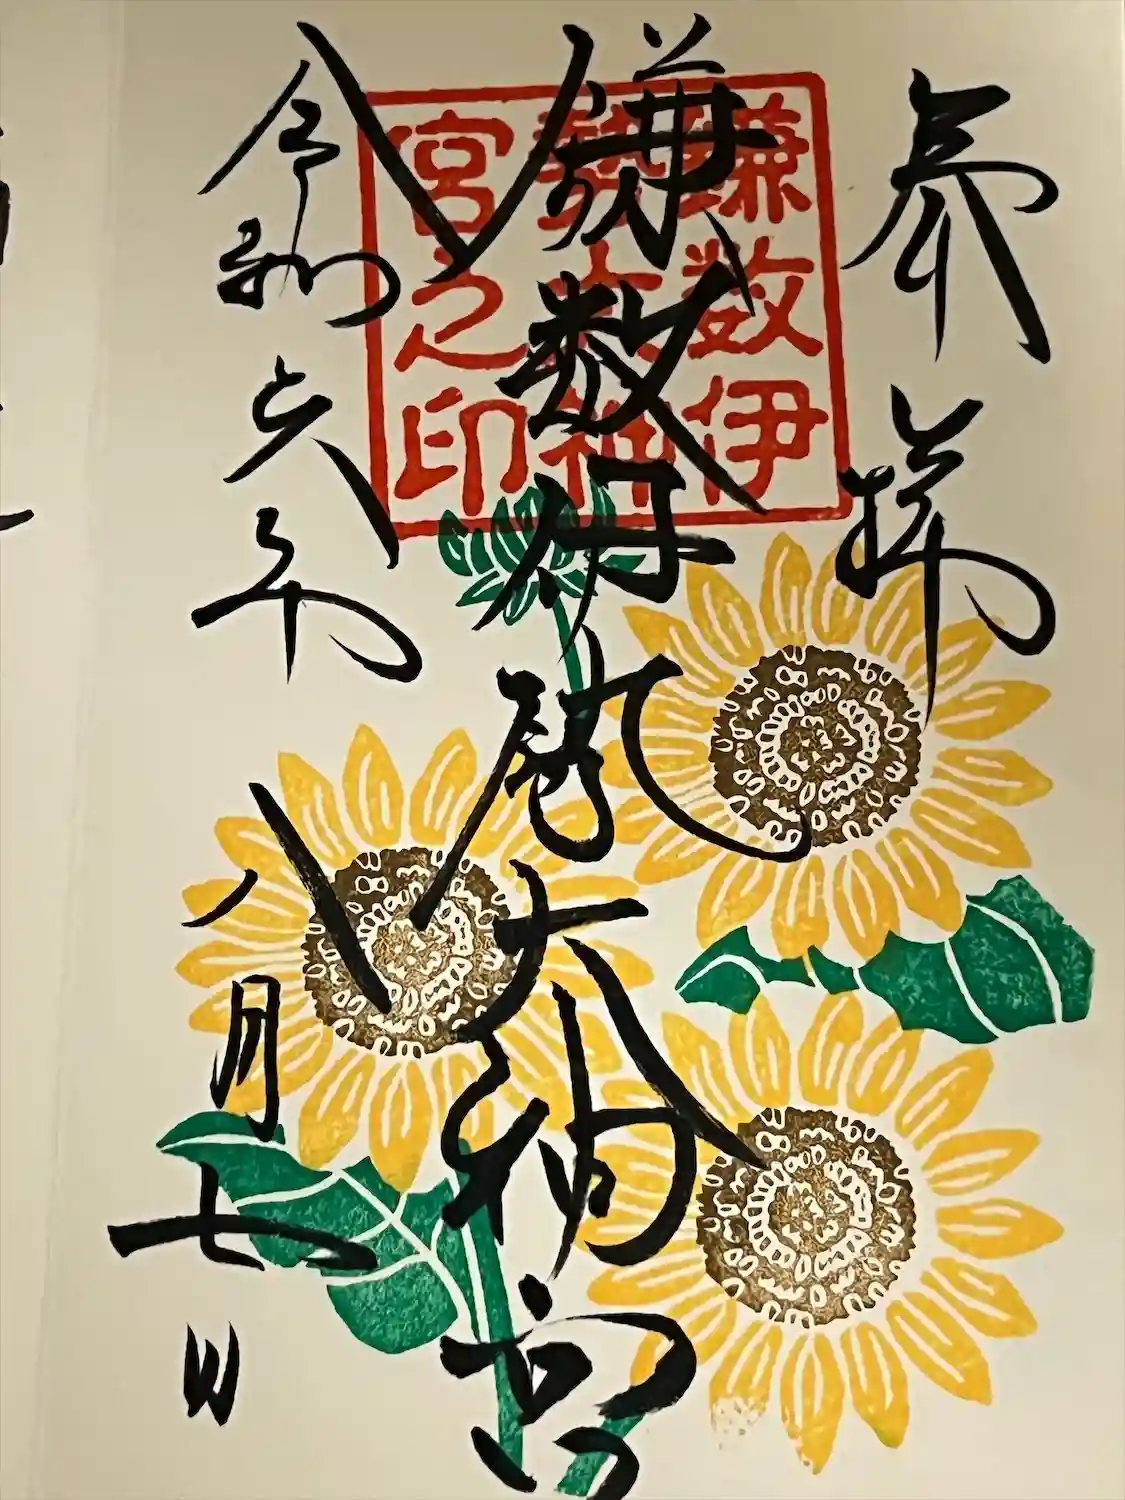 奉拝
鎌数伊勢大神宮
鎌数伊
勢大神
宮之印
令和六年
八月七日